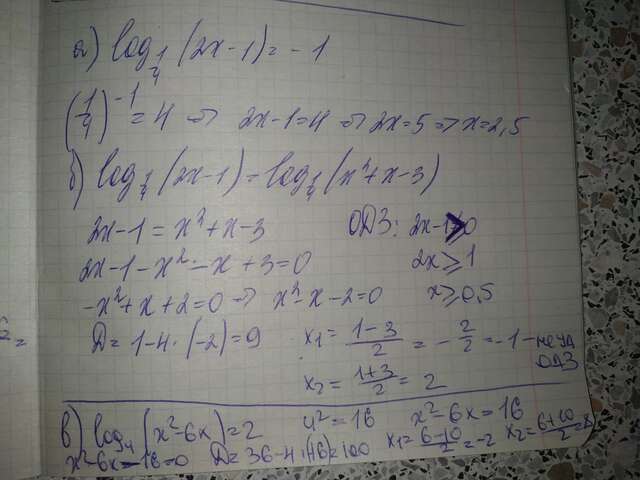 а) log_{1/4} (2x-1) = -1
(1/4)^{-1} = 4 => 2x-1=4 => 2x=5 => x=2,5
б) log_{1/4} (2x-1) = log_{1/4} (x²+x-3)
2x-1 = x²+x-3 ОДЗ: 2x-1>0
2x-1-x²-x+3=0 2x⩾1
-x²+x+2=0 => x²-x-2=0 x⩾0,5
D= 1-4·(-2)=9 x₁= \frac{1-3}{2} = -\frac{2}{2} = -1 -
ОДЗ
x₂= \frac{1+3}{2} = 2
в) log₄ (x²-6x)=2 4²=16 x²-6x=16
x²-6x-16=0 D=36-4·(-16)=100 x₁=\frac{6-10}{2}=-2 x₂=\frac{6+10}{2}=8